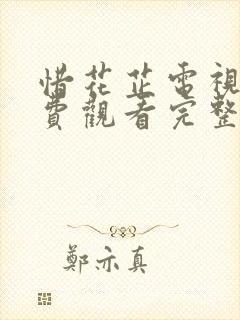 惜花芷電視
費觀看完整
鄭亦真